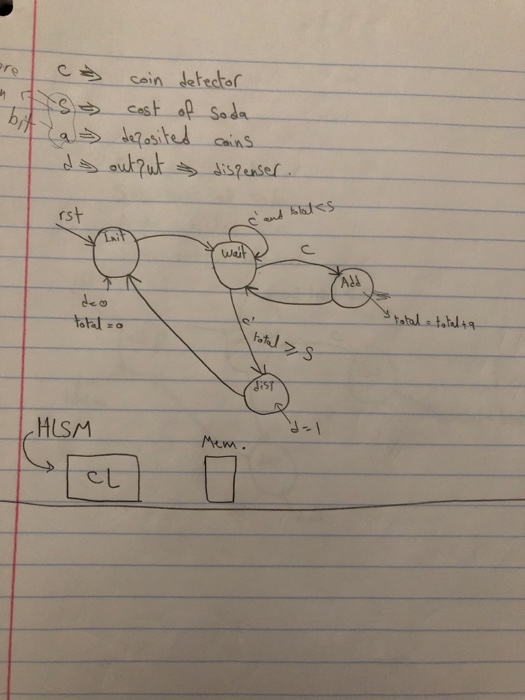 c ⇒ coin detector
s ⇒ cost of soda
bit
a ⇒ deposited coins
d ⇒ output ⇒ dispenser.
rst
c' and total < s
Init
wait
c
Add
d=0
total = 0
c'
total ≥ s
total = total + a
disp
d=1
HLSM
Mem.
CL